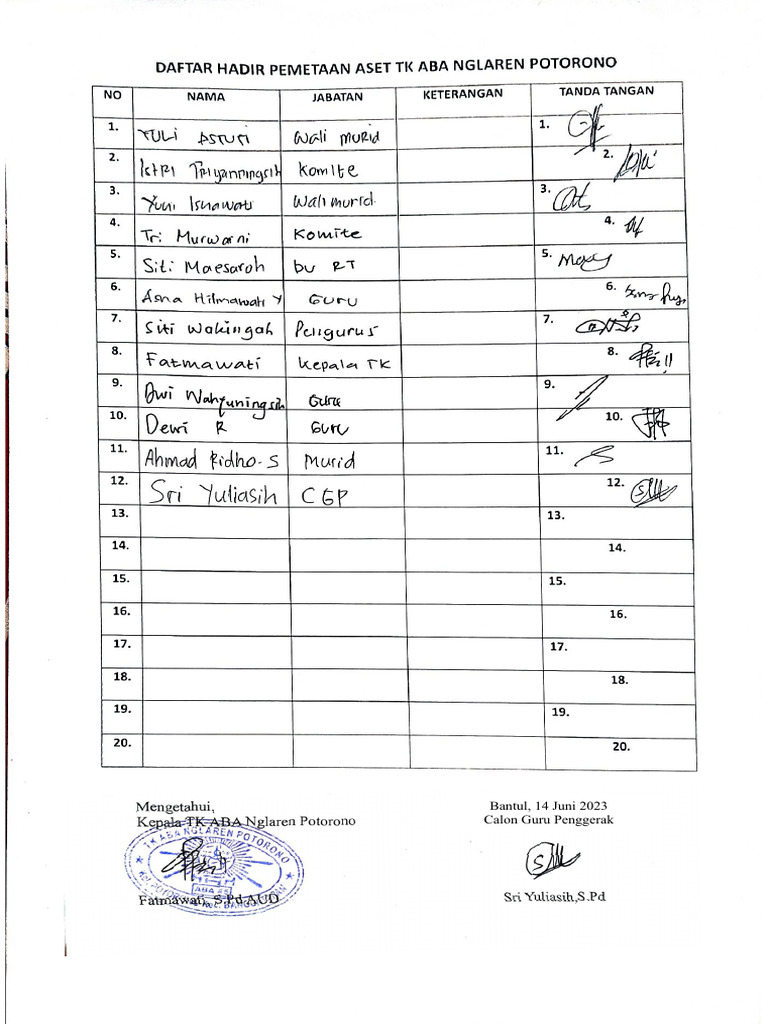 DAFTAR HADIR PEMETAAN ASET TK ABA NGLAREN POTORONO
NO NAMA JABATAN KETERANGAN TANDA TANGAN
1. YULI ASTUTI Wali Murid 1.
2. IstRI Triyanningsih Komite 2.
3. Yuni Isnawati Wali murid. 3.
4. Tri Murwarni Komite 4.
5. Siti Maesaroh bu RT 5.
6. Asna Hilmawati Y GURU 6.
7. Siti Wakingah Pengurus 7.
8. Fatmawati Kepala TK 8.
9. Dwi Wahyuningsih Guru 9.
10. Dewi R GURU 10.
11. Ahmad Ridho.S Murid 11.
12. Sri Yuliasih CGP 12.
13. 13.
14. 14.
15. 15.
16. 16.
17. 17.
18. 18.
19. 19.
20. 20.
Mengetahui, Bantul, 14 Juni 2023
Kepala TK ABA Nglaren Potorono Calon Guru Penggerak
TK ABA NGLAREN POTORONO
Fatmawati, S.Pd AUD Sri Yuliasih,S.Pd